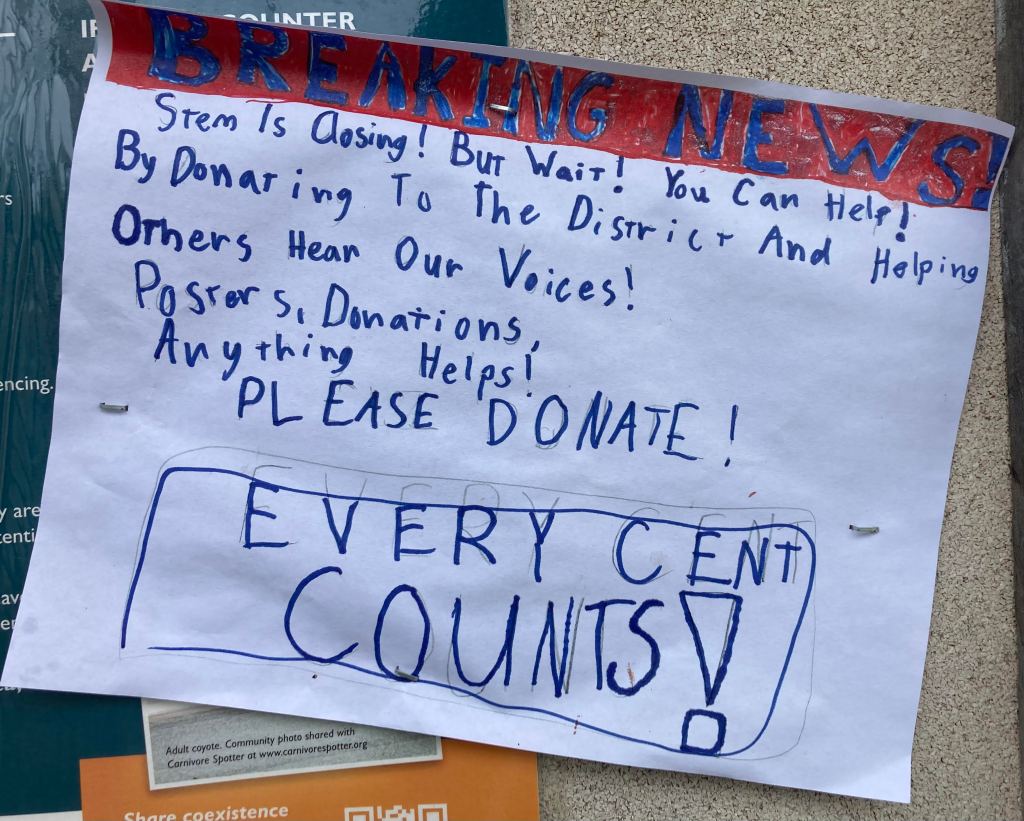 OUNTER
BREAKING NEWS!
Stem Is Closing! But Wait! You Can Help!
By Donating To The District And Helping
Others Hear Our Voices!
Posters, Donations,
Anything Helps!
PLEASE DONATE!
EVERY CENT
COUNTS!
encing.
y are
Adult coyote. Community photo shared with
Carnivore Spotter at www.carnivorespotter.org
Share coexistence